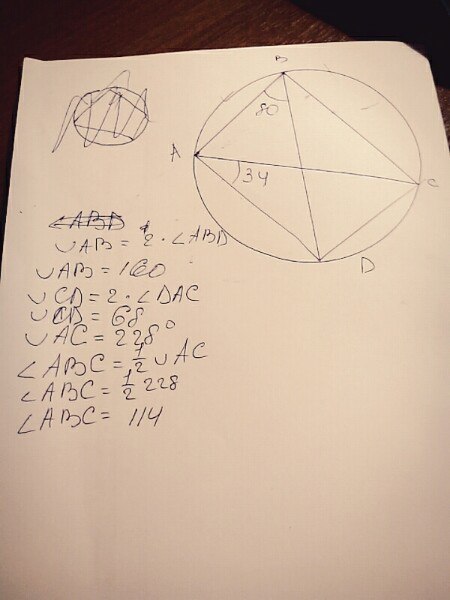 B
80
A
34
C
D
∠ABD
∪AB = 2 · ∠ABD
∪AB = 160
∪CD = 2 · ∠DAC
∪CD = 68
∪AC = 228°
∠ABC = 1/2 ∪AC
∠ABC = 1/2 228
∠ABC = 114